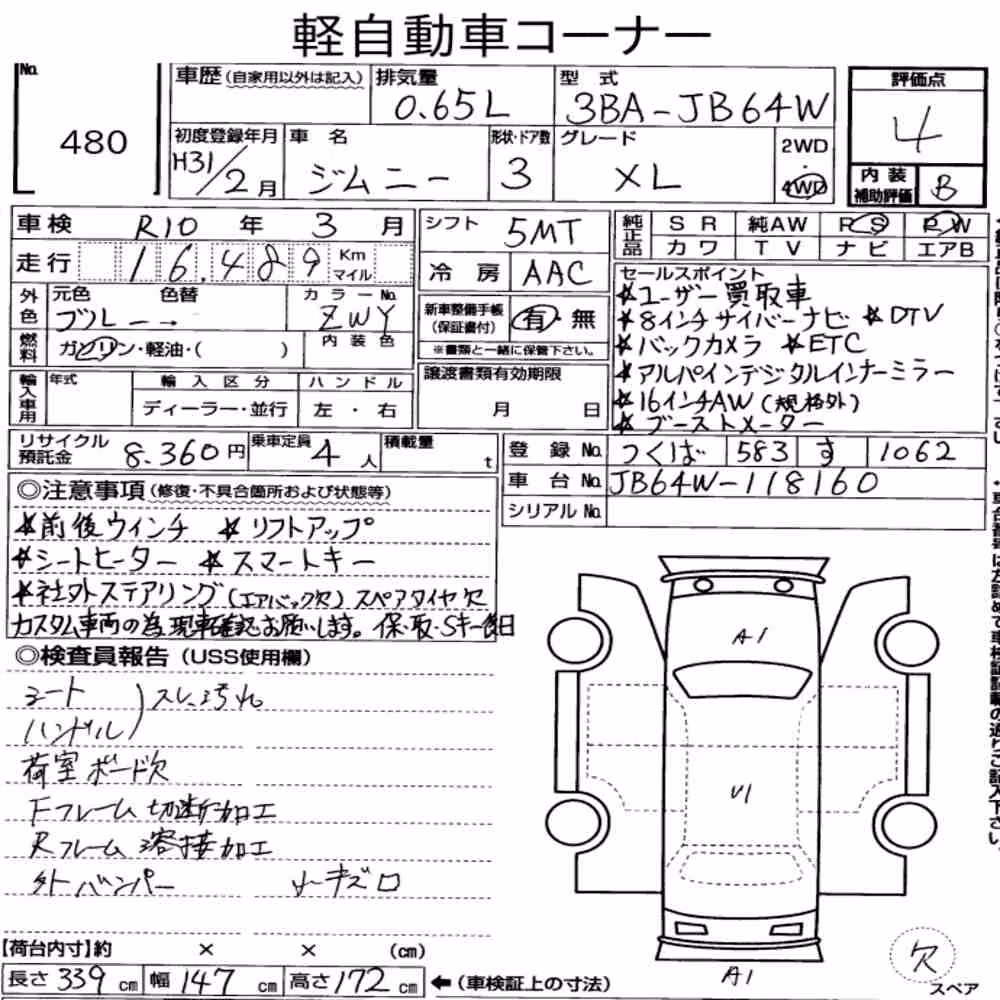 軽自動車コーナー
No. 480
車歴 (自家用以外は記入) 排気量 0.65L 型式 3BA-JB64W 評価点 4
初度登録年月 H31/2月 車名 ジムニー 形状・ドア数 3 グレード XL 2WD・4WD 内装補助評価 B
車検 R10年 3月 シフト 5MT 純正品 SR 純AW PS PW
カワ TV ナビ エアB
走行 16.489 Km マイル 冷房 AAC
外色 元色 色替 カラーNo. ブルー→ ZWY
新車整備手帳 (保証書付) 有・無
※書類と一緒に保管下さい。
燃料 ガソリン・軽油・( ) 内装色
輸入車用 年式 輸入区分 ハンドル
ディーラー・並行 左・右
譲渡書類有効期限 月 日
セールスポイント
★ユーザー買取車
★8インチサイバーナビ ★DTV
★バックカメラ ★ETC
★アルパインデジタルインナーミラー
★16インチAW (規格外)
★ブーストメーター
リサイクル預託金 8.360円 乗車定員 4人 積載量 t
登録No. つくば 583 す 1062
車台No. JB64W-118160
シリアルNo.
◎注意事項 (修復・不具合箇所および状態等)
★前後ウインチ ★リフトアップ
★シートヒーター ★スマートキー
★社外ステアリング (エアバック欠) スペアタイヤ欠
カスタム車両の為現車確認お願いします。保・取・Sキー後日
◎検査員報告 (USS使用欄)
シート
ハンドル ) スレ、汚れ
荷室ボード欠
Fフレーム切断加工
Rフレーム溶接加工
外バンパー 小キズ
A1
U1
A1
【荷台内寸】約 × × (cm)
長さ 339cm 幅 147cm 高さ 172cm ←(車検証上の寸法)
欠
スペア